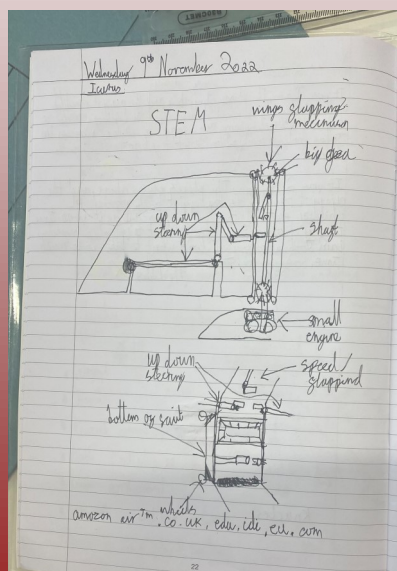 Wednesday 9th November 2022
Icarus
STEM
wings flapping
mecinism
big gea
up down
stearing
shaft
small
engine
up down
steering
speed/
flappind
bottom of suit
wheels
amazon air™ .co.uk, edu, ide, eu. com
22